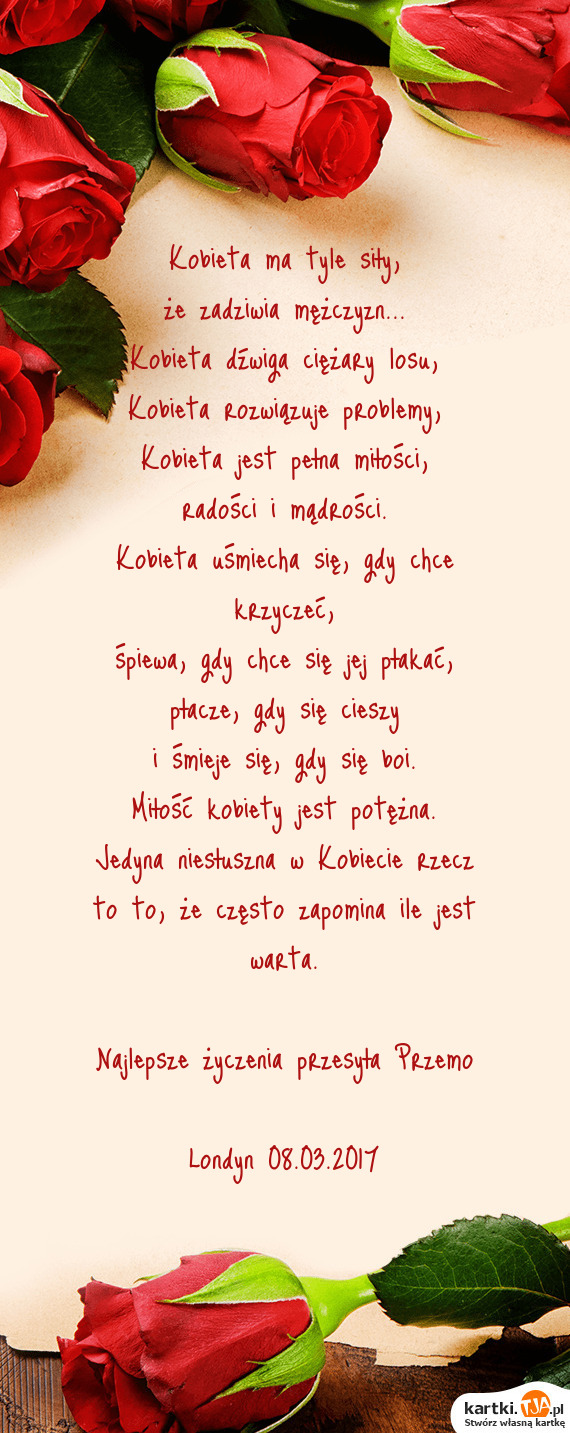 Kobieta ma tyle siły,
że zadziwia mężczyzn...
Kobieta dźwiga ciężary losu,
Kobieta rozwiązuje problemy,
Kobieta jest pełna miłości,
radości i mądrości.
Kobieta uśmiecha się, gdy chce
krzyczeć,
śpiewa, gdy chce się jej płakać,
płacze, gdy się cieszy
i śmieje się, gdy się boi.
Miłość kobiety jest potężna.
Jedyna niesłuszna w Kobiecie rzecz
to to, że często zapomina ile jest
warta.
Najlepsze życzenia przesyła Przemo
Londyn 08.03.2017
kartki.TJA.pl
Stwórz własną kartkę